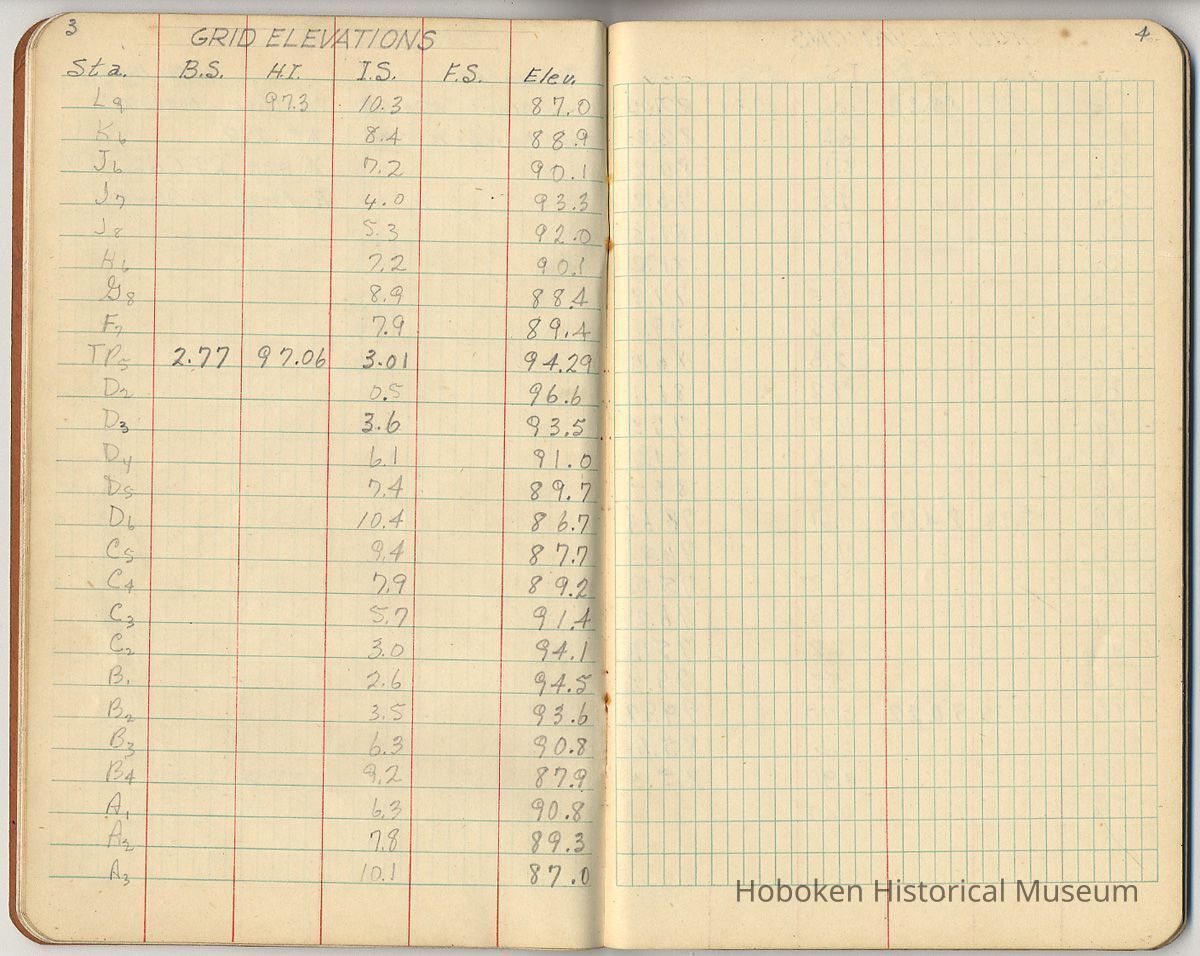 3
GRID ELEVATIONS
Sta. B.S. H.I. I.S. F.S. Elev.
L9 97.3 10.3 87.0
K6 8.4 88.9
J6 7.2 90.1
J7 4.0 93.3
J8 5.3 92.0
H6 7.2 90.1
G8 8.9 88.4
F7 7.9 89.4
TP5 2.77 97.06 3.01 94.29
D2 0.5 96.6
D3 3.6 93.5
D4 6.1 91.0
D5 7.4 89.7
D6 10.4 86.7
C5 9.4 87.7
C4 7.9 89.2
C3 5.7 91.4
C2 3.0 94.1
B1 2.6 94.5
B2 3.5 93.6
B3 6.3 90.8
B4 9.2 87.9
A1 6.3 90.8
A2 7.8 89.3
A3 10.1 87.0
4
Hoboken Historical Museum